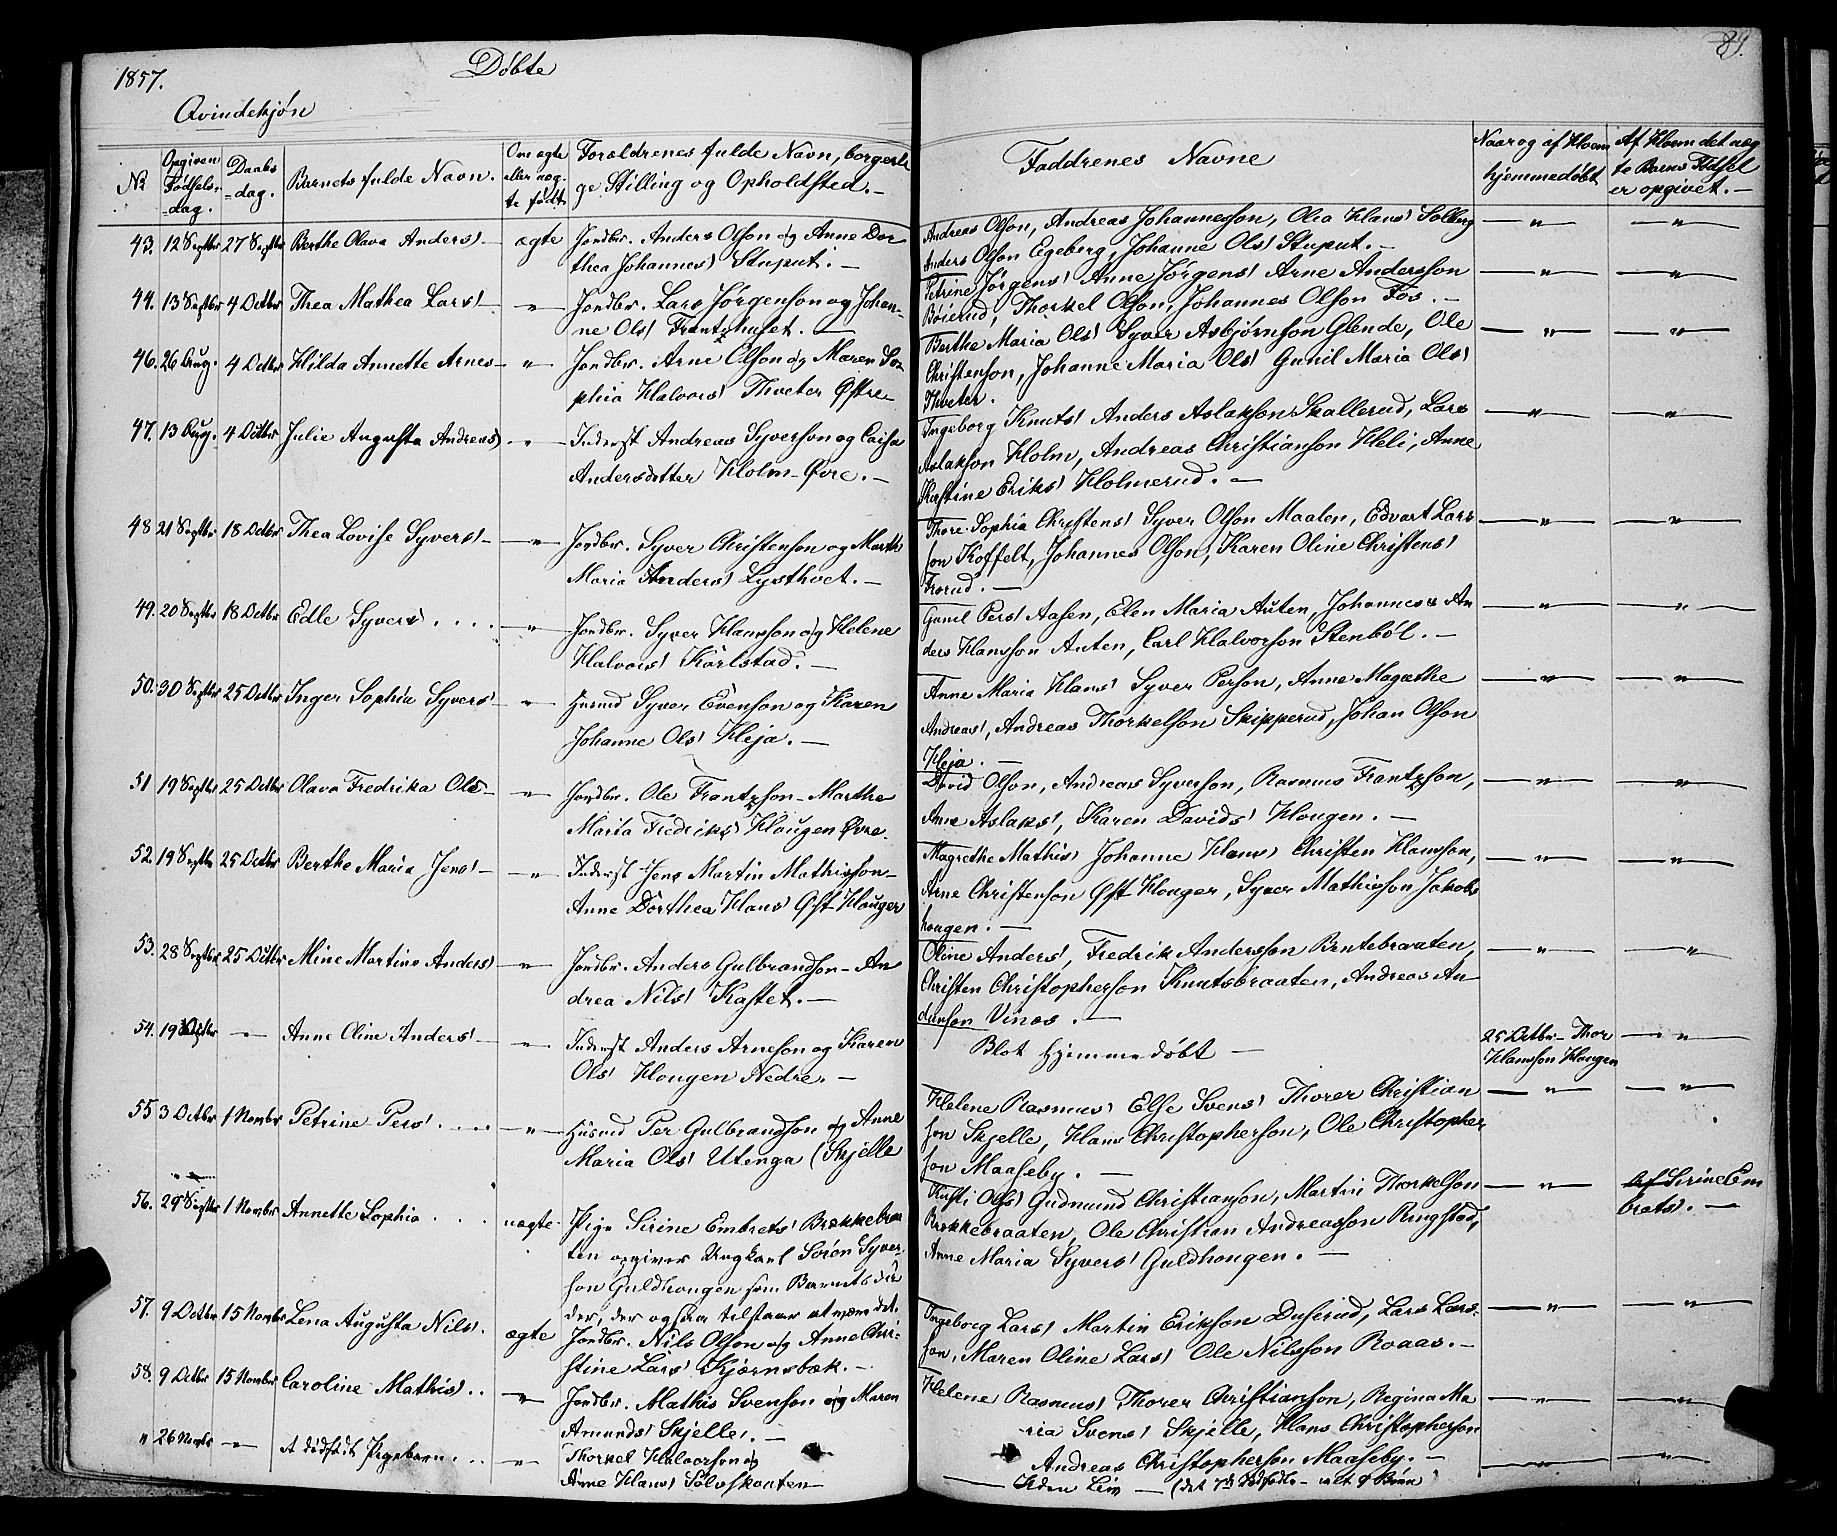 1857.
Døbte
89.
Qvindekjøn
No
Opgiven Fødsels-dag.
Daabs-dag.
Barnets fulde Navn.
Om ægte eller uægte født
Forældrenes fulde Navn, borgerlige Stilling og Opholdsted.
Faddrenes Navne
Naar og af Hvem hjemmedøbt
Af Hvem det uægte Barns Fødsel er opgivet.
43. 12 Septbr 27 Septbr Berthe Olava Anders' ægte Jordbr. Anders Olson og Anne Dor
thea Johannes' Stuput.
Andreas Olson, Andreas Johannesson, Olea Hans' Solberg
Anders Olson Egeberg, Johanne Ols' Stuput.
44. 13 Septbr 4 Octbr Thea Mathea Lars' " Jordbr. Lars Jørgenson og Johan-
ne Ols' Frantzhuset.
Petrine Jørgens' Anne Jørgens' Arne Andersson
Bøierud, Thorkel Olson, Johannes Olson Fos.
46. 26 Aug. 4 Octbr Hilda Annette Arnes " Jordbr. Arne Olson og Maren So-
phia Halvors' Thveter Østre
Berthe Maria Ols' Syver Asbjørnson Glende, Ole
Christenson, Johanne Maria Ols' Gunil Maria Ols'
Thveter.
47. 13 Aug. 4 Octbr Julie Augusta Andreas' " Inderst Andreas Syverson og Caisa
Andersdotter Holm-Øvre.
Ingeborg Knuts' Anders Aslakson Skallerud, Lars
Aslakson Holm, Andreas Christianson Heli, Anne
Kirstine Eriks' Holmerud.
48 21 Septbr 18 Octbr Thea Lovise Syvers' " Jordbr. Syver Christenson og Marth
Maria Anders' Lysthvet.
Thore Sophia Christens' Syver Olson Maalen, Edvart Lars
son Koffelt, Johannes Olson, Karen Oline Christens'
Frorud.
49. 20 Septbr 18 Octbr Edle Syvers' " Jordbr. Syver Hansson og Helene
Halvors' Karlstad.
Gunil Pers' Aasen, Elen Maria Auten, Johannes & An
ders Hansson Auten, Carl Halvorson Stenbøl.
50. 30 Septbr 25 Octbr Inger Sophia Syvers' " Husmd Syver Evenson og Karen
Johanne Ols' Heja.
Anne Maria Hans' Syver Person, Anne Magrethe
Andreas', Andreas Thorkelson Skipperud, Johan Olson
Heja.
51 19 Septbr 25 Octbr Olava Fredrika Ols " Jordbr. Ole Frantzson - Marthe
Maria Fredriks' Haugen Øvre.
David Olson, Andreas Syverson, Rasmus Frantzson,
Anne Aslaks', Karen Davids' Hougen.
52. 19 Septbr 25 Octbr Berthe Maria Jens' " Inderst Jens Martin Mathisson
Anne Dorthea Hans' Øst Hauger
Magrethe Mathis' Johanne Hans' Christen Hansson,
Arne Christenson Øst Houger, Syver Mathisson Jakobs
hougen.
53. 28 Septbr 25 Octbr Mine Martine Anders' " Jordbr. Anders Gulbrandson - An
drea Nils' Kastet.
Oline Anders', Fredrik Andersson Brutebraaten,
Christen Christopherson Knutsbraaten, Andreas An
dersson Vines.
54. 19 " Anne Oline Anders' " Inderst Anders Arneson og Karen
Ols' Hougen Nedre.
Blot hjemmedøbt
25 Octbr - Thor
Hansson Hougen
55 3 Octbr 1 Novembr Petrine Pers' " Husmd Per Gulbrandson og Anne
Maria Ols' Utenga (Skjelle
Helene Rasmus' Else Svens' Thorer Christian
son Skjelle, Hans Christopherson, Ole Christopher
son Maaseby.
56. 29 Septbr 1 Novembr Annette Sophia uægte Pige Sirine Embrets' Brækkebraa
ten opgiver Ungkarl Soren Syver-
son Guldhougen som Barnets Fa
der, der ogsaa tilstaar at være det.
Kirsti Ols' Gudmund Christianson, Martin Thorkelson
Brækkebraaten, Ole Christian Andreasson Ringstad,
Anne Maria Syvers' Guldhougen.
Af Sirine Em
brets'.
57. 9 Octbr 15 Novembr Lena Augusta Nils'. ægte Jordbr. Nils Olson og Anne Chri-
stine Lars' Kjærnsbæk.
Ingeborg Lars' Martin Erikson Duserud, Lars Lars-
son, Maren Oline Lars' Ole Nilsson Roaas.
58. 9 Octbr 15 Novembr Caroline Mathis'. " Jordbr. Mathis Svenson og Maren
Amunds' Skjelle.
Helene Rasmus' Thorer Christianson, Regina Ma
ria Svens' Skjelle, Hans Christopherson
Andreas Christopherson Maaseby.
" 26 Novbr " Et dødfødt Pigebarn " Thorkel Halvorson og
Anne Hans' Sølvskouten
Uden Liv (det 7de